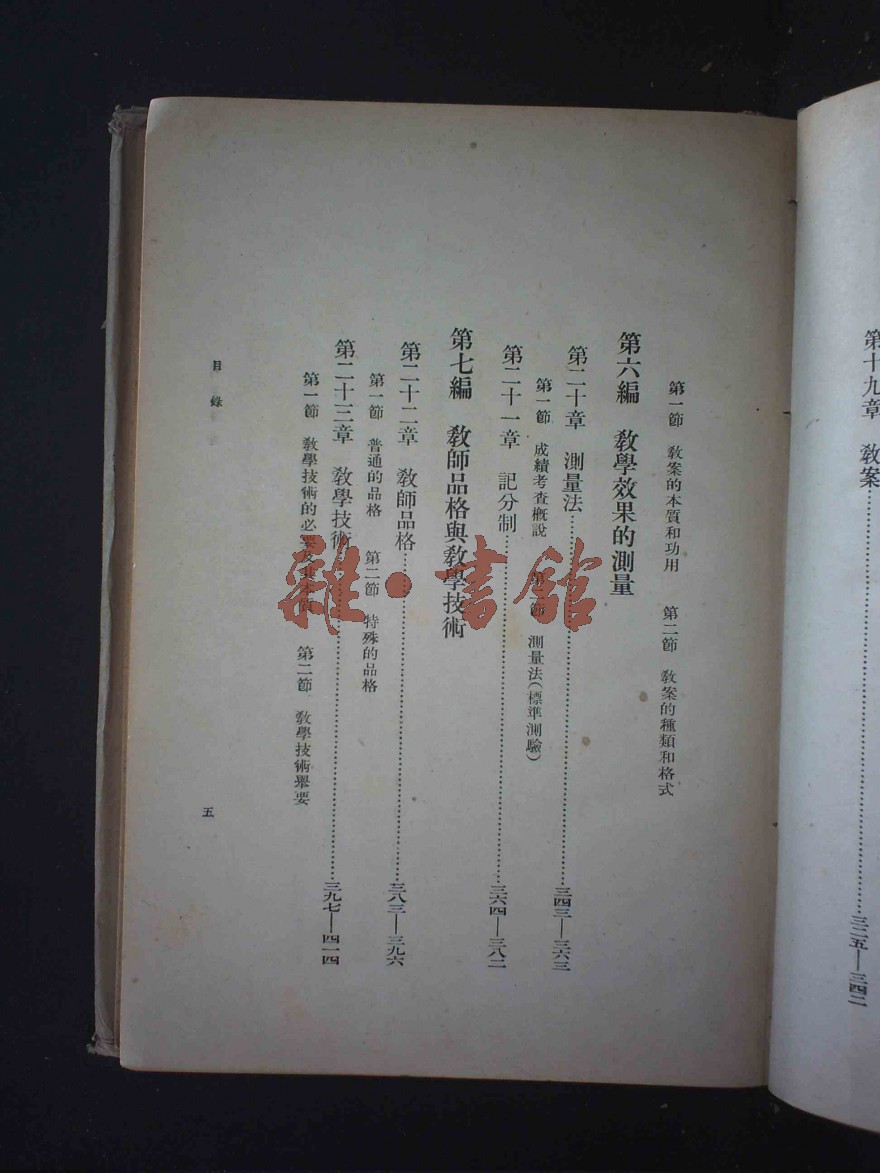 第十九章　教案……三二五—三四二
第一節　教案的本質和功用　第二節　教案的種類和格式
第六編　教學效果的測量
第二十章　測量法……三四三—三六三
第一節　成績考查概說　第二節　測量法(標準測驗)
第二十一章　記分制……三六四—三八二
第七編　教師品格與教學技術
第二十二章　教師品格……三八三—三九六
第一節　普通的品格　第二節　特殊的品格
第二十三章　教學技術……三九七—四一四
第一節　教學技術的必要及其本質　第二節　教學技術舉要
目錄
五
雜·書館